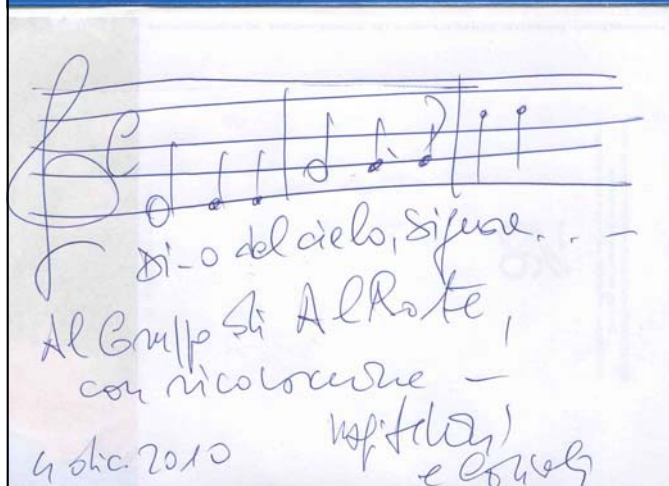 Di-o del cielo, Signore...-
Al Gruppo di Al Rote,
con riconoscenza -
4 dic. 2010